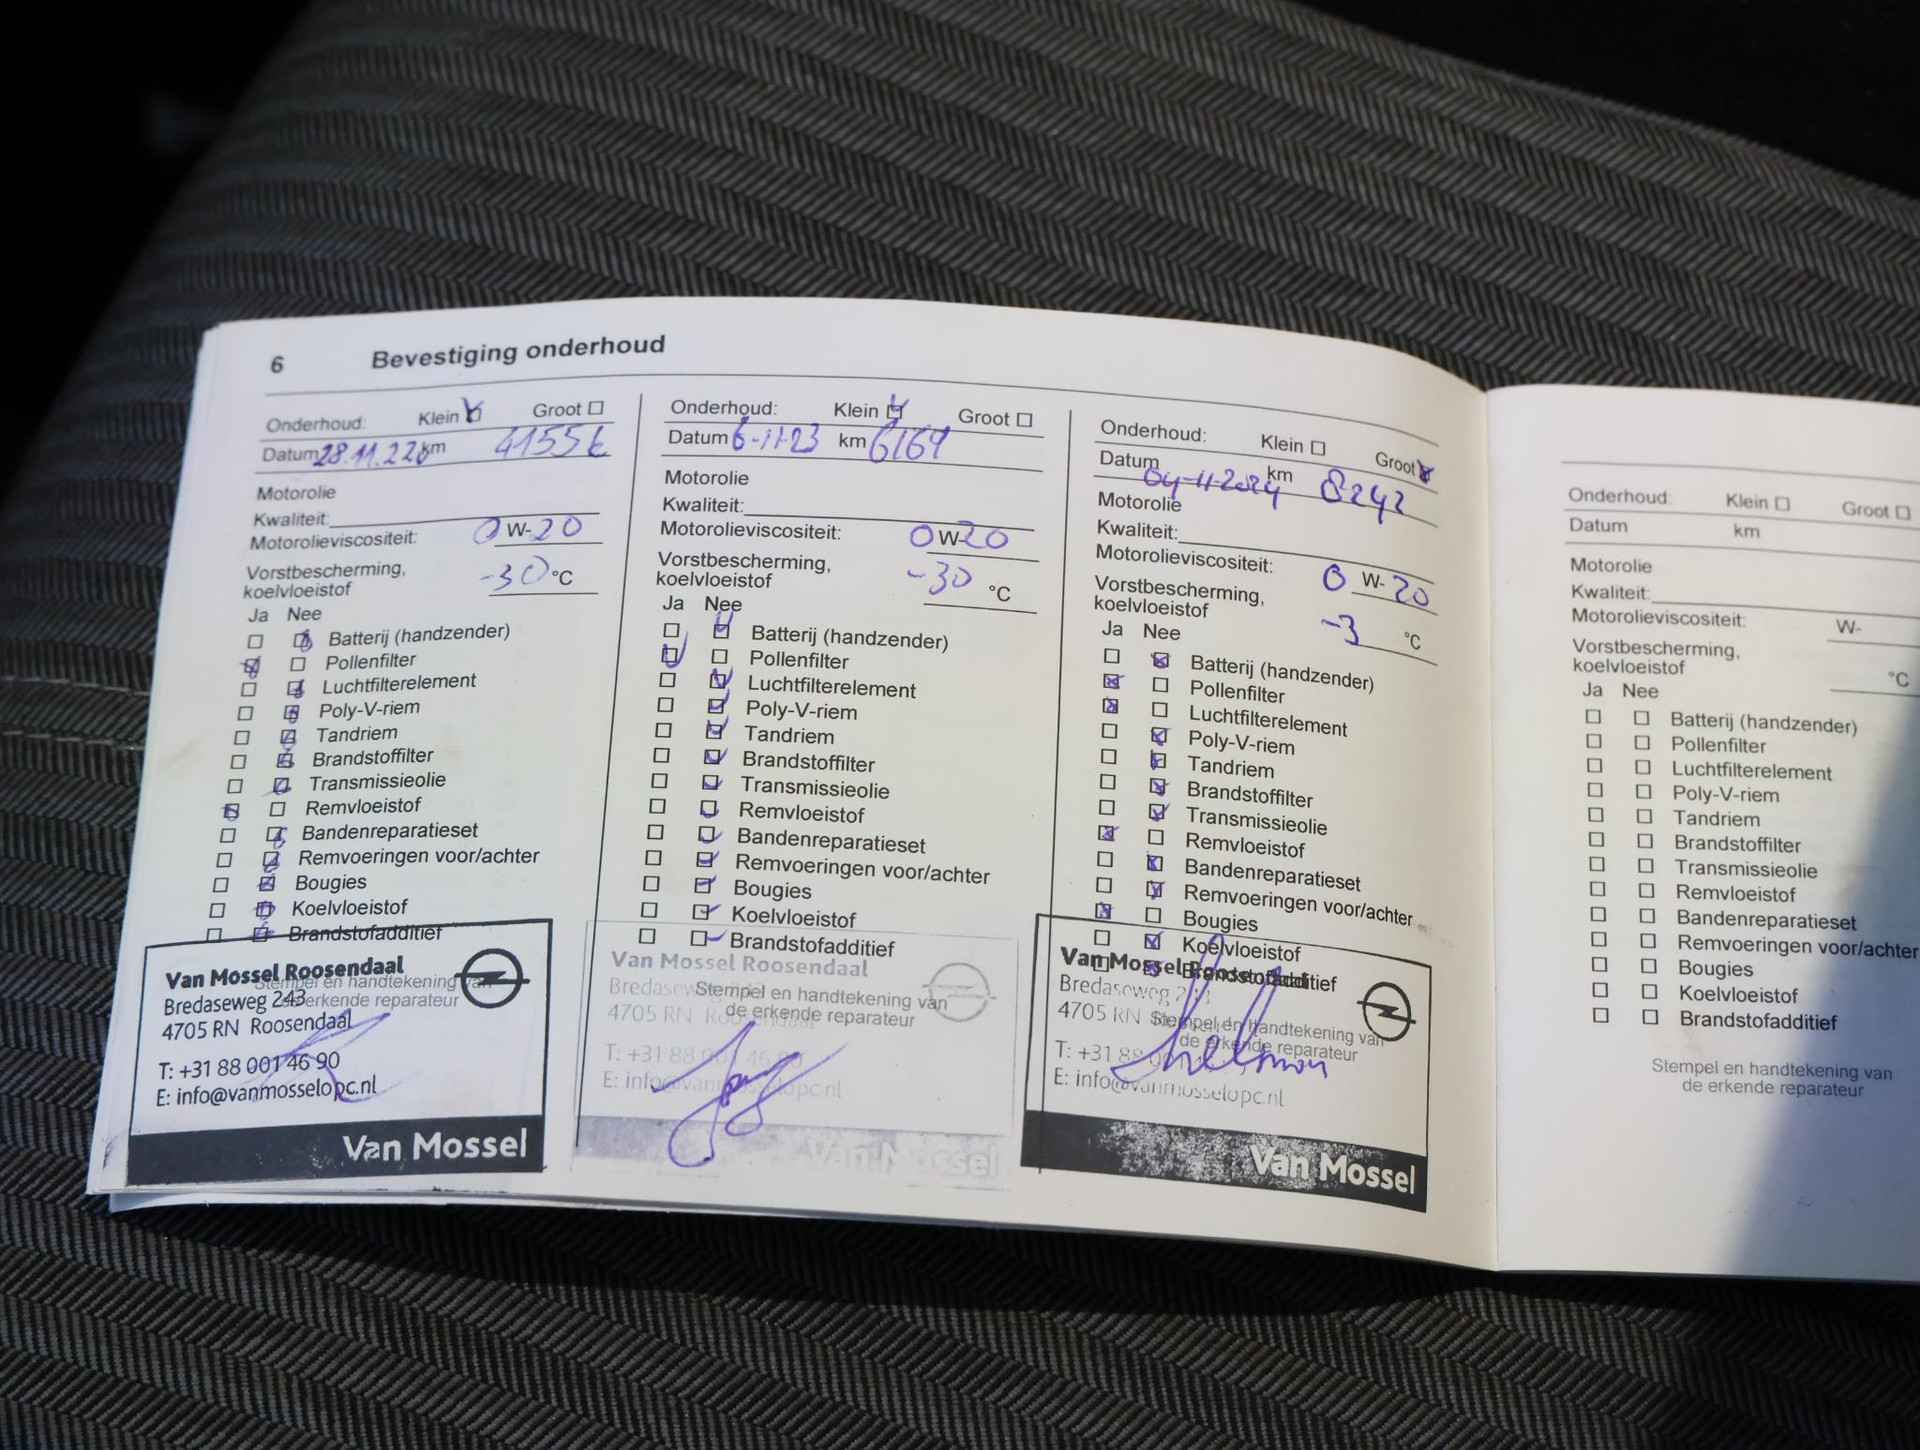 6 Bevestiging onderhoud
Onderhoud: Klein Groot
Datum 28.11.22 km 41556
Motorolie
Kwaliteit:
Motorolieviscositeit: 0 W-20
Vorstbescherming,
koelvloeistof -30 °C
Ja Nee
Batterij (handzender)
Pollenfilter
Luchtfilterelement
Poly-V-riem
Tandriem
Brandstoffilter
Transmissieolie
Remvloeistof
Bandenreparatieset
Remvoeringen voor/achter
Bougies
Koelvloeistof
Brandstofadditief
Stempel en handtekening van
de erkende reparateur
Van Mossel Roosendaal
Bredaseweg 243
4705 RN Roosendaal
T: +31 88 001 46 90
E: info@vanmosselopc.nl
Van Mossel
Onderhoud: Klein Groot
Datum 6-11-23 km 6169
Motorolie
Kwaliteit:
Motorolieviscositeit: 0W-20
Vorstbescherming,
koelvloeistof -30 °C
Ja Nee
Batterij (handzender)
Pollenfilter
Luchtfilterelement
Poly-V-riem
Tandriem
Brandstoffilter
Transmissieolie
Remvloeistof
Bandenreparatieset
Remvoeringen voor/achter
Bougies
Koelvloeistof
Brandstofadditief
Stempel en handtekening van
de erkende reparateur
Van Mossel Roosendaal
Bredaseweg
4705 RN Roosendaal
T: +31 88 001 46 90
E: info@vanmosselopc.nl
Van Mossel
Onderhoud: Klein Groot
Datum 04-11-2024 km 8242
Motorolie
Kwaliteit:
Motorolieviscositeit: 0 W-20
Vorstbescherming,
koelvloeistof -3 °C
Ja Nee
Batterij (handzender)
Pollenfilter
Luchtfilterelement
Poly-V-riem
Tandriem
Brandstoffilter
Transmissieolie
Remvloeistof
Bandenreparatieset
Remvoeringen voor/achter
Bougies
Koelvloeistof
Brandstofadditief
Stempel en handtekening van
de erkende reparateur
Van Mossel Roosendaal
Bredaseweg 243
4705 RN
T: +31 88
E: info@vanmosselopc.nl
Van Mossel
Onderhoud: Klein Groot
Datum km
Motorolie
Kwaliteit:
Motorolieviscositeit: W-
Vorstbescherming,
koelvloeistof °C
Ja Nee
Batterij (handzender)
Pollenfilter
Luchtfilterelement
Poly-V-riem
Tandriem
Brandstoffilter
Transmissieolie
Remvloeistof
Bandenreparatieset
Remvoeringen voor/achter
Bougies
Koelvloeistof
Brandstofadditief
Stempel en handtekening van
de erkende reparateur